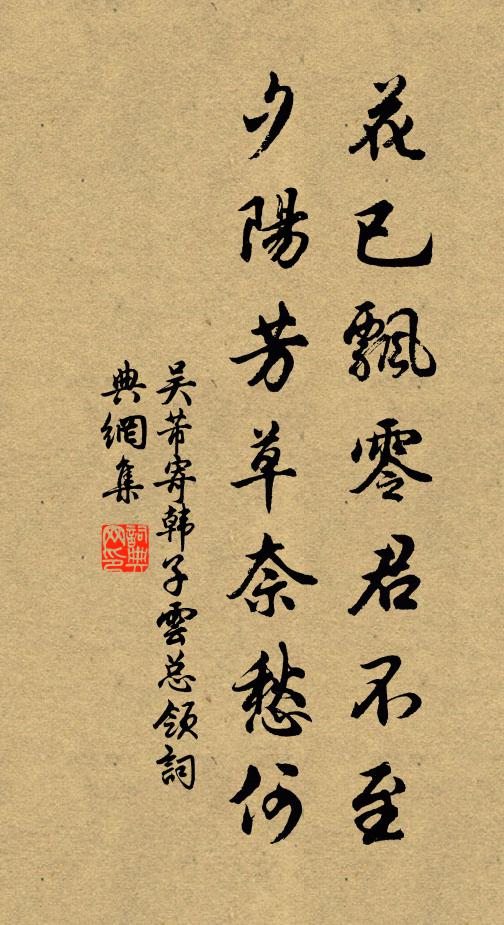 花已飄零君不至
夕陽芳草奈愁何
吴芾寄韩子雲总领詞
典網集
詞典網印